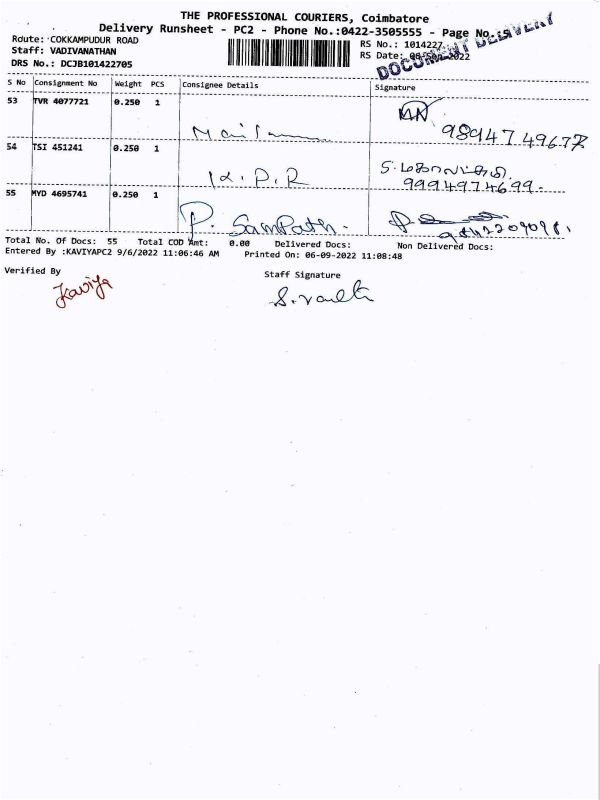 THE PROFESSIONAL COURIERS, Coimbatore
Delivery Runsheet - PC2 - Phone No.:0422-3505555 - Page No.
Route: COKKAMPUDUR ROAD
RS No.: 1014227
Staff: VADIVANATHAN
RS Date: 06-Sep-2022
DOCUMENT DELIVERY
DRS No.: DCJB101422705
S No Consignment No Weight PCS Consignee Details Signature
53 TVR 4077721 0.250 1
98947 49677
54 TSI 451241 0.250 1
K.P.R
S. மகாலட்சுமி.
9994974699.
55 MYD 4695741 0.250 1
P. Sampath.
9842209098.
Total No. Of Docs: 55 Total COD Amt: 0.00 Delivered Docs: Non Delivered Docs:
Entered By :KAVIYAPC2 9/6/2022 11:06:46 AM Printed On: 06-09-2022 11:08:48
Verified By Staff Signature
Kaviya